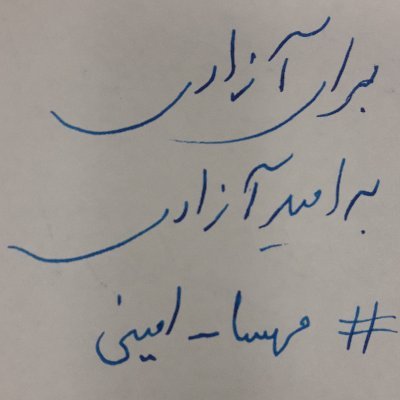 برای آزادی
به امید آزادی
#مهسا_امینی